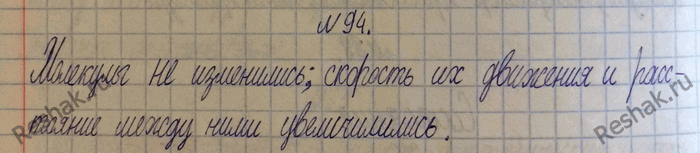 №94.
Молекулы не изменились; скорость их движения и расс-
тояние между ними увеличилились.
Reshak.ru
Reshak.ru